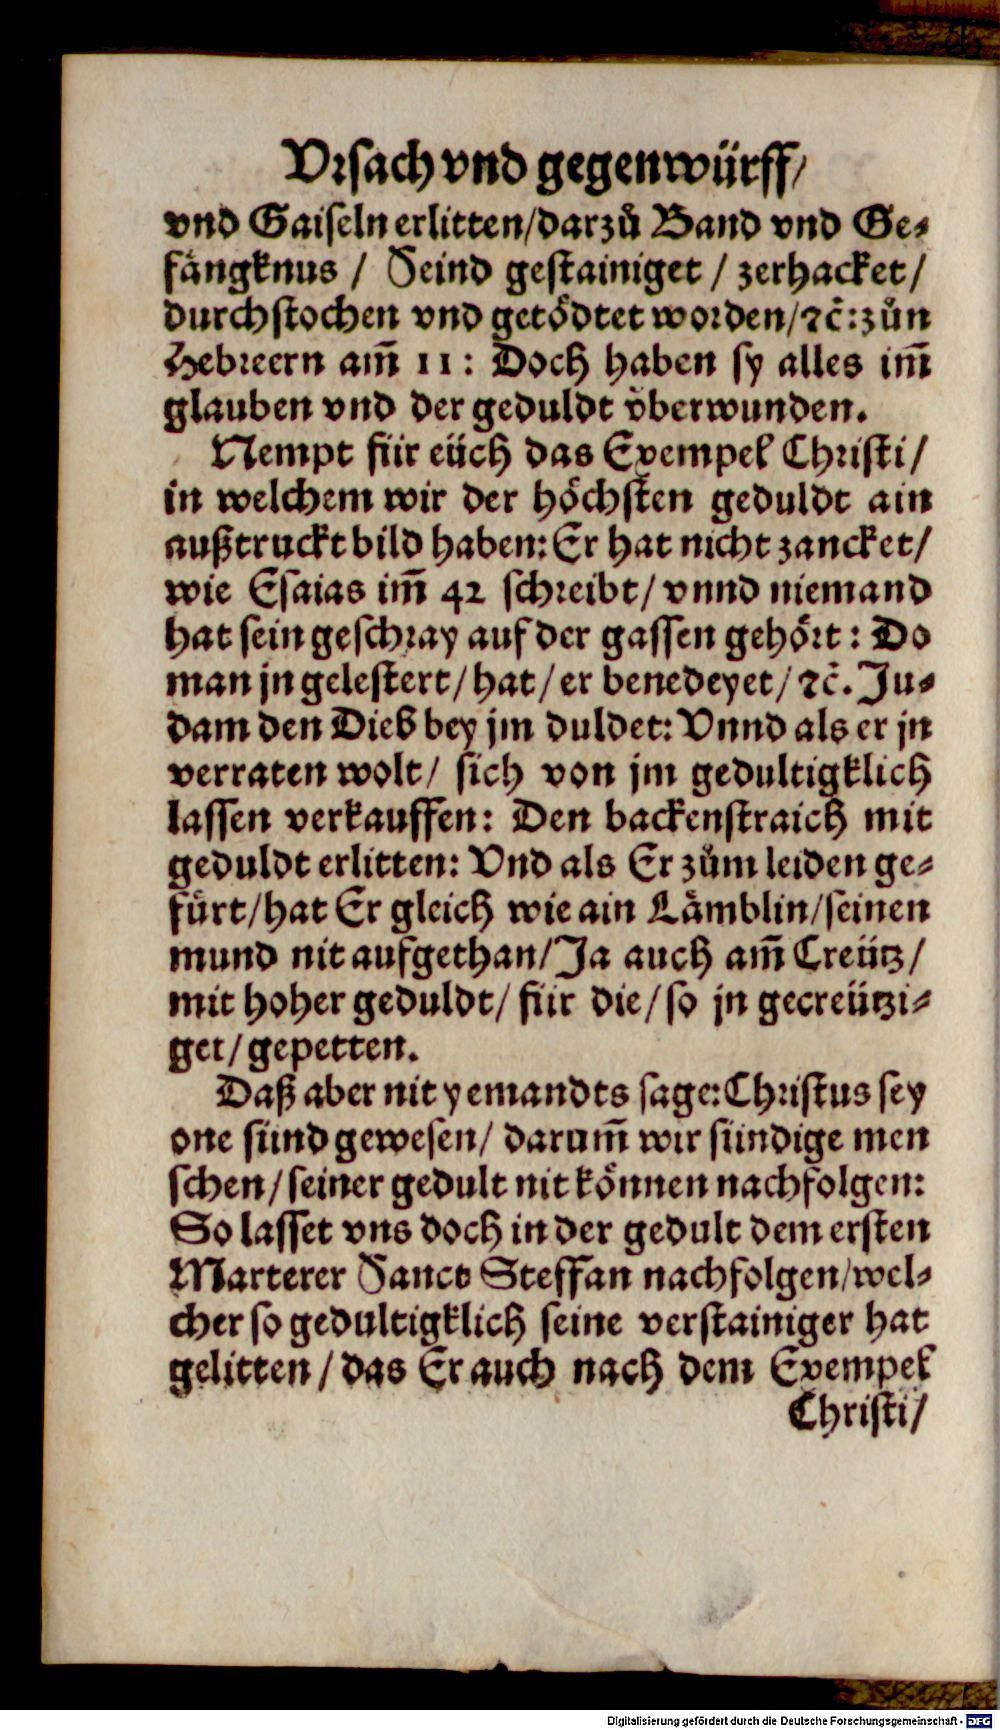 Vrsach vnd gegenwürff/
vnd Gaiseln erlitten/darzů Band vnd Ge-
fängknus / Seind gestainiget / zerhacket/
durchstochen vnd getödtet worden/ꝛc̃: zůn
Hebreern am̃ 11: Doch haben sy alles im̃
glauben vnd der geduldt vͤberwunden.
Nempt für eüch das Exempel Christi/
in welchem wir der höchsten geduldt ain
außtruckt bild haben: Er hat nicht zancket/
wie Esaias im̃ 42 schreibt/ vnnd niemand
hat sein geschray auf der gassen gehört: Do
man jn gelestert/hat/er benedeyet/ꝛc̃. Ju-
dam den Dieb bey jm duldet: Vnnd als er jn
verraten wolt/ sich von jm gedultigklich
lassen verkauffen: Den backenstraich mit
geduldt erlitten: Vnd als Er zům leiden ge-
fürt/hat Er gleich wie ain Lämblin/seinen
mund nit aufgethan/Ja auch am̃ Creütz/
mit hoher geduldt/ für die/so jn gecreützi-
get/gepetten.
Daß aber nit yemandts sage: Christus sey
one sünd gewesen/ darum̃ wir sündige men
schen/seiner gedult nit können nachfolgen:
So lasset vns doch in der gedult dem ersten
Marterer Sanct Steffan nachfolgen/wel-
cher so gedultigklich seine verstainiger hat
gelitten/das Er auch nach dem Exempel
Christi/
Digitalisierung gefördert durch die Deutsche Forschungsgemeinschaft - DFG